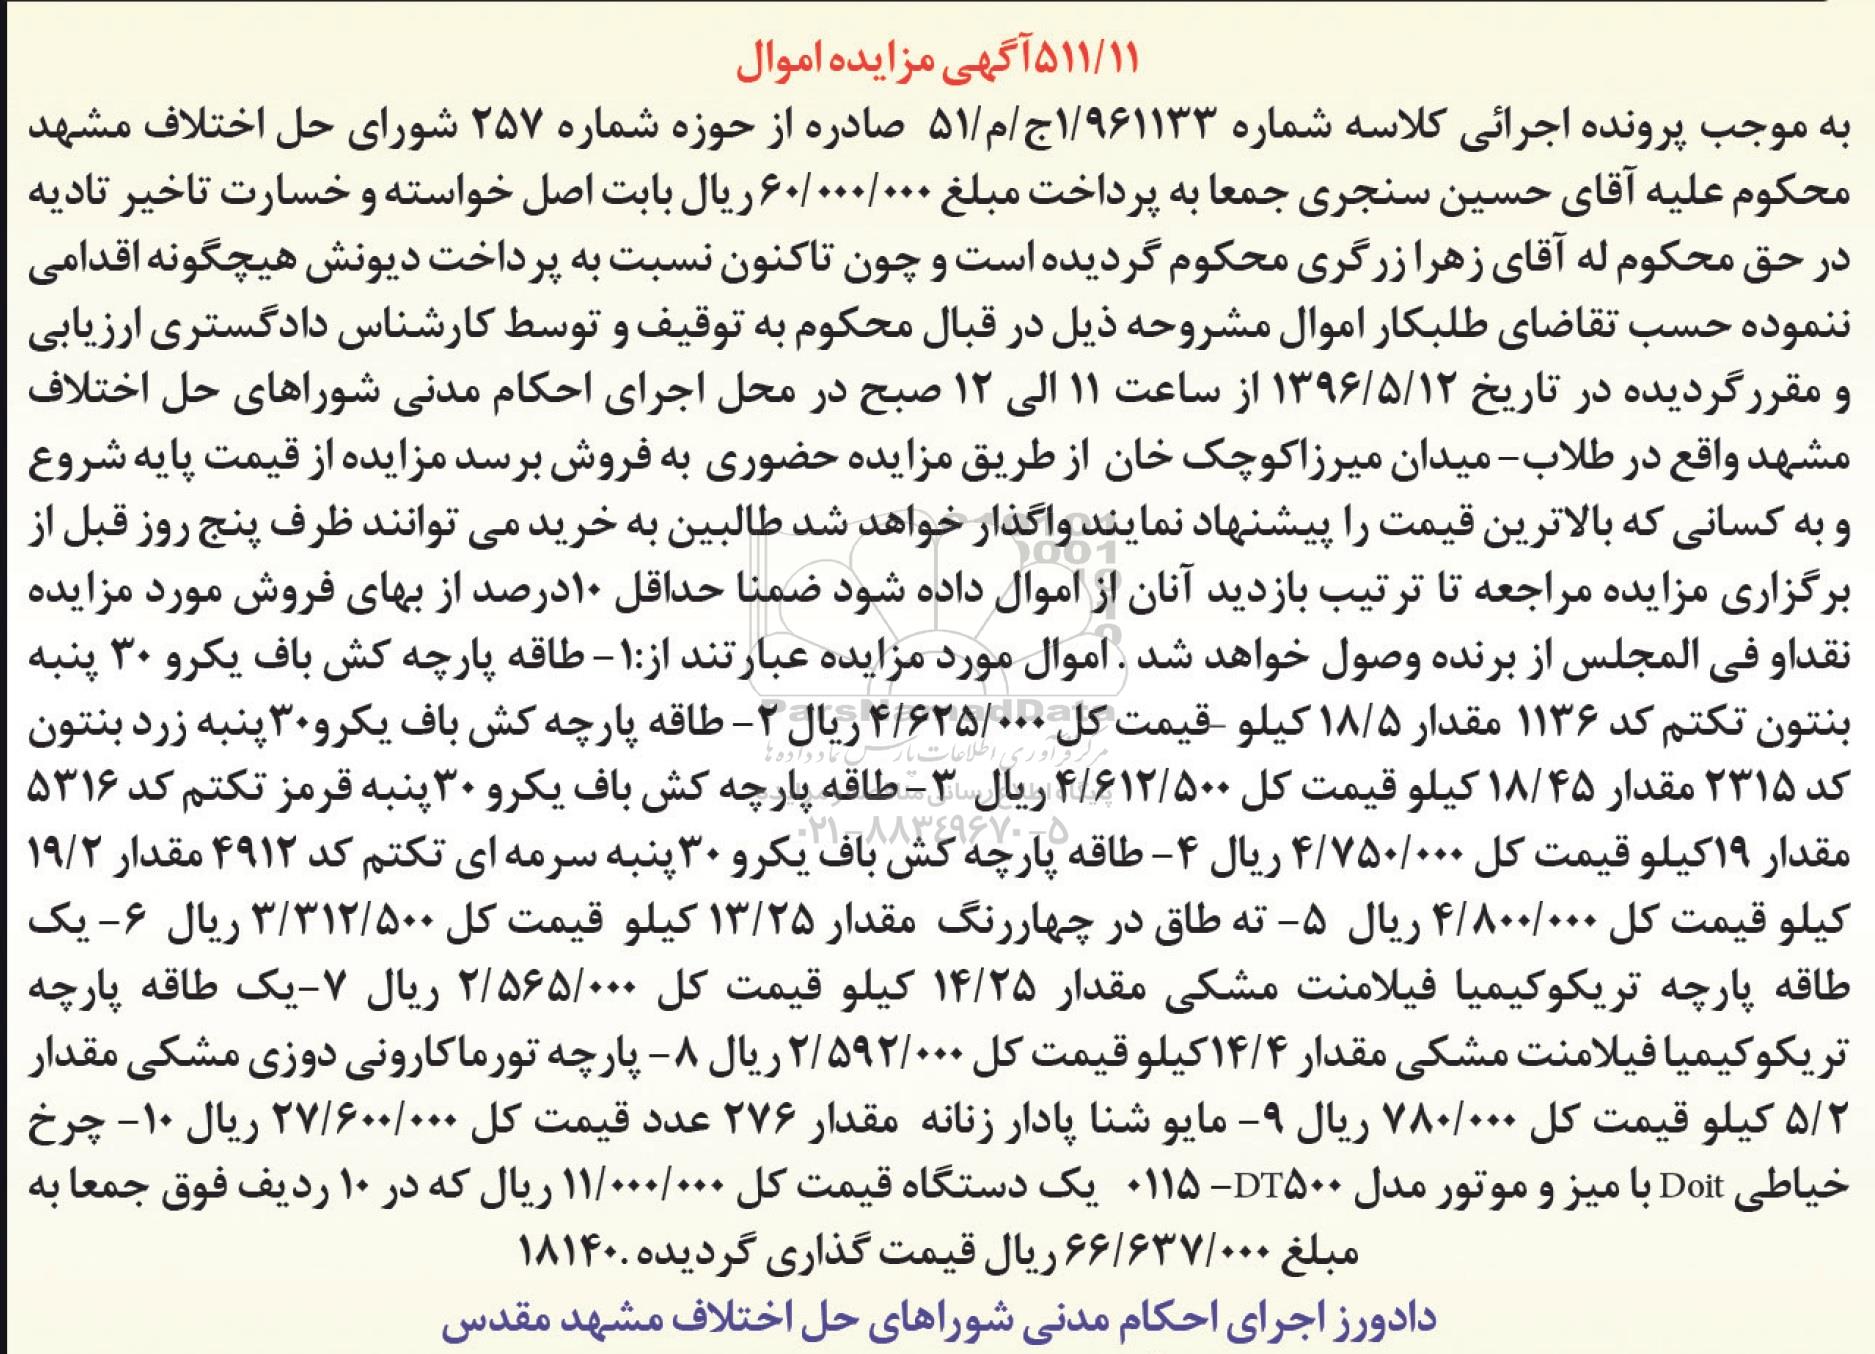 ۵۱۱/۱۱آگهی مزایده اموال
به موجب پرونده اجرائی کلاسه شماره ۱/۹۶۱۱۳۳ج/م/۵۱ صادره از حوزه شماره ۲۵۷ شورای حل اختلاف مشهد
محکوم علیه آقای حسین سنجری جمعا به پرداخت مبلغ ۶۰/۰۰۰/۰۰۰ ریال بابت اصل خواسته و خسارت تاخیر تادیه
در حق محکوم له آقای زهرا زرگری محکوم گردیده است و چون تاکنون نسبت به پرداخت دیونش هیچگونه اقدامی
ننموده حسب تقاضای طلبکار اموال مشروحه ذیل در قبال محکوم به توقیف و توسط کارشناس دادگستری ارزیابی
و مقرر گردیده در تاریخ ۱۳۹۶/۵/۱۲ از ساعت ۱۱ الی ۱۲ صبح در محل اجرای احکام مدنی شوراهای حل اختلاف
مشهد واقع در طلاب- میدان میرزاکوچک خان از طریق مزایده حضوری به فروش برسد مزایده از قیمت پایه شروع
و به کسانی که بالاترین قیمت را پیشنهاد نمایند واگذار خواهد شد طالبین به خرید می توانند ظرف پنج روز قبل از
برگزاری مزایده مراجعه تا ترتیب بازدید آنان از اموال داده شود ضمنا حداقل ۱۰درصد از بهای فروش مورد مزایده
نقداو فی المجلس از برنده وصول خواهد شد . اموال مورد مزایده عبارتند از:۱- طاقه پارچه کش باف یکرو ۳۰ پنبه
بنتون تکتم کد ۱۱۳۶ مقدار ۱۸/۵ کیلو –قیمت کل ۴/۶۲۵/۰۰۰ ریال ۲- طاقه پارچه کش باف یکرو۳۰پنبه زرد بنتون
کد ۲۳۱۵ مقدار ۱۸/۴۵ کیلو قیمت کل ۴/۶۱۲/۵۰۰ ریال ۳- طاقه پارچه کش باف یکرو ۳۰پنبه قرمز تکتم کد ۵۳۱۶
مقدار ۱۹کیلو قیمت کل ۴/۷۵۰/۰۰۰ ریال ۴- طاقه پارچه کش باف یکرو ۳۰پنبه سرمه ای تکتم کد ۴۹۱۲ مقدار ۱۹/۲
کیلو قیمت کل ۴/۸۰۰/۰۰۰ ریال ۵- ته طاق در چهاررنگ مقدار ۱۳/۲۵ کیلو قیمت کل ۳/۳۱۲/۵۰۰ ریال ۶- یک
طاقه پارچه تریکوکیمیا فیلامنت مشکی مقدار ۱۴/۲۵ کیلو قیمت کل ۲/۵۶۵/۰۰۰ ریال ۷-یک طاقه پارچه
تریکوکیمیا فیلامنت مشکی مقدار ۱۴/۴کیلو قیمت کل ۲/۵۹۲/۰۰۰ ریال ۸- پارچه تورماکارونی دوزی مشکی مقدار
۵/۲ کیلو قیمت کل ۷۸۰/۰۰۰ ریال ۹- مایو شنا پادار زنانه مقدار ۲۷۶ عدد قیمت کل ۲۷/۶۰۰/۰۰۰ ریال ۱۰- چرخ
خیاطی Doit با میز و موتور مدل DT۵۰۰- ۰۱۱۵ یک دستگاه قیمت کل ۱۱/۰۰۰/۰۰۰ ریال که در ۱۰ ردیف فوق جمعا به
مبلغ ۶۶/۶۳۷/۰۰۰ ریال قیمت گذاری گردیده .۱۸۱۴۰
دادورز اجرای احکام مدنی شوراهای حل اختلاف مشهد مقدس
ParsNamadData
مرکز فرآوری اطلاعات پارس نماد داده ها
پایگاه اطلاع رسانی مناقصه و مزایده
۰۲۱-۸۸۳۴۹۶۷۰-۵